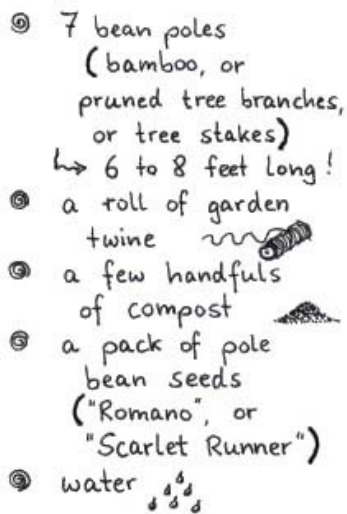 7 bean poles
(bamboo, or
pruned tree branches,
or tree stakes)
↳ 6 to 8 feet long!
a roll of garden
twine
a few handfuls
of compost
a pack of pole
bean seeds
("Romano", or
"Scarlet Runner")
water